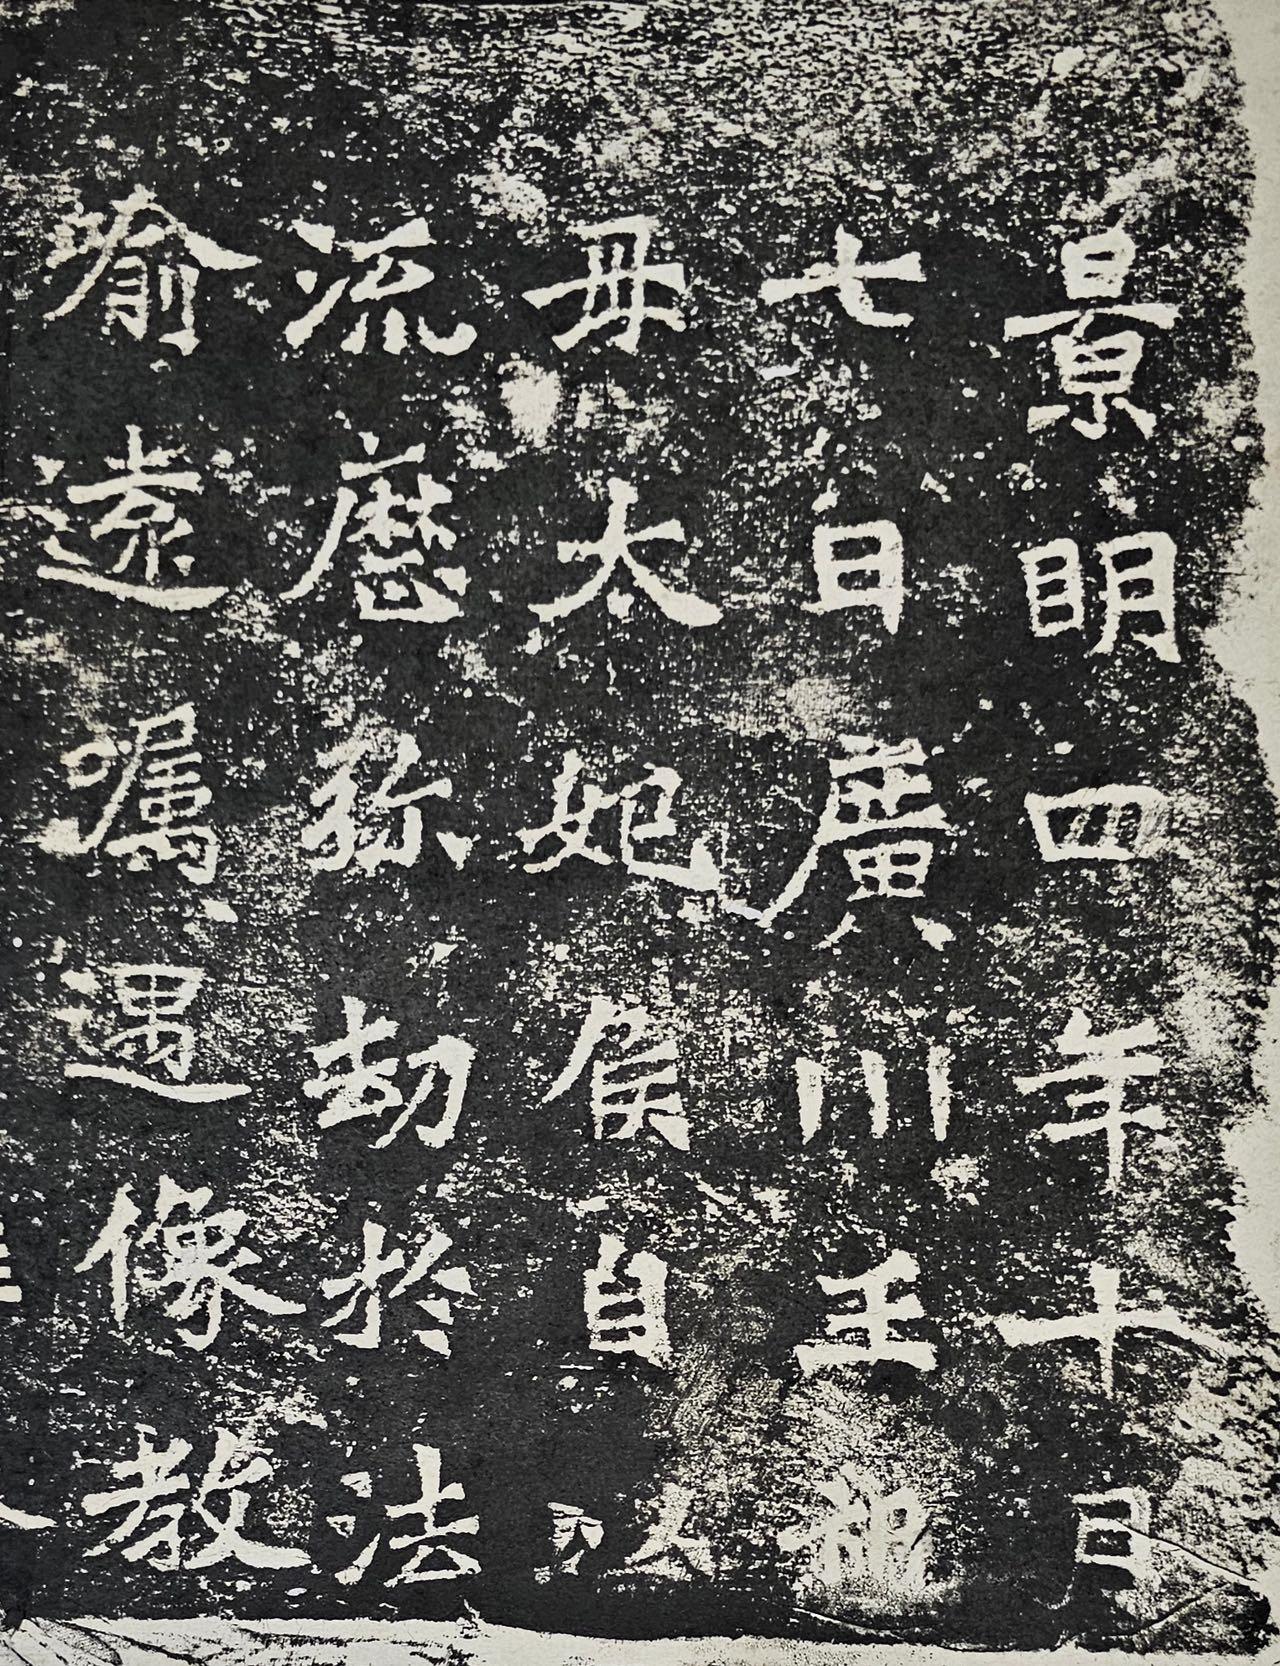 景明四年十月
七日廣川王祖
母太妃侯自以
流歷弥劫於法
喻遠囑遇像教